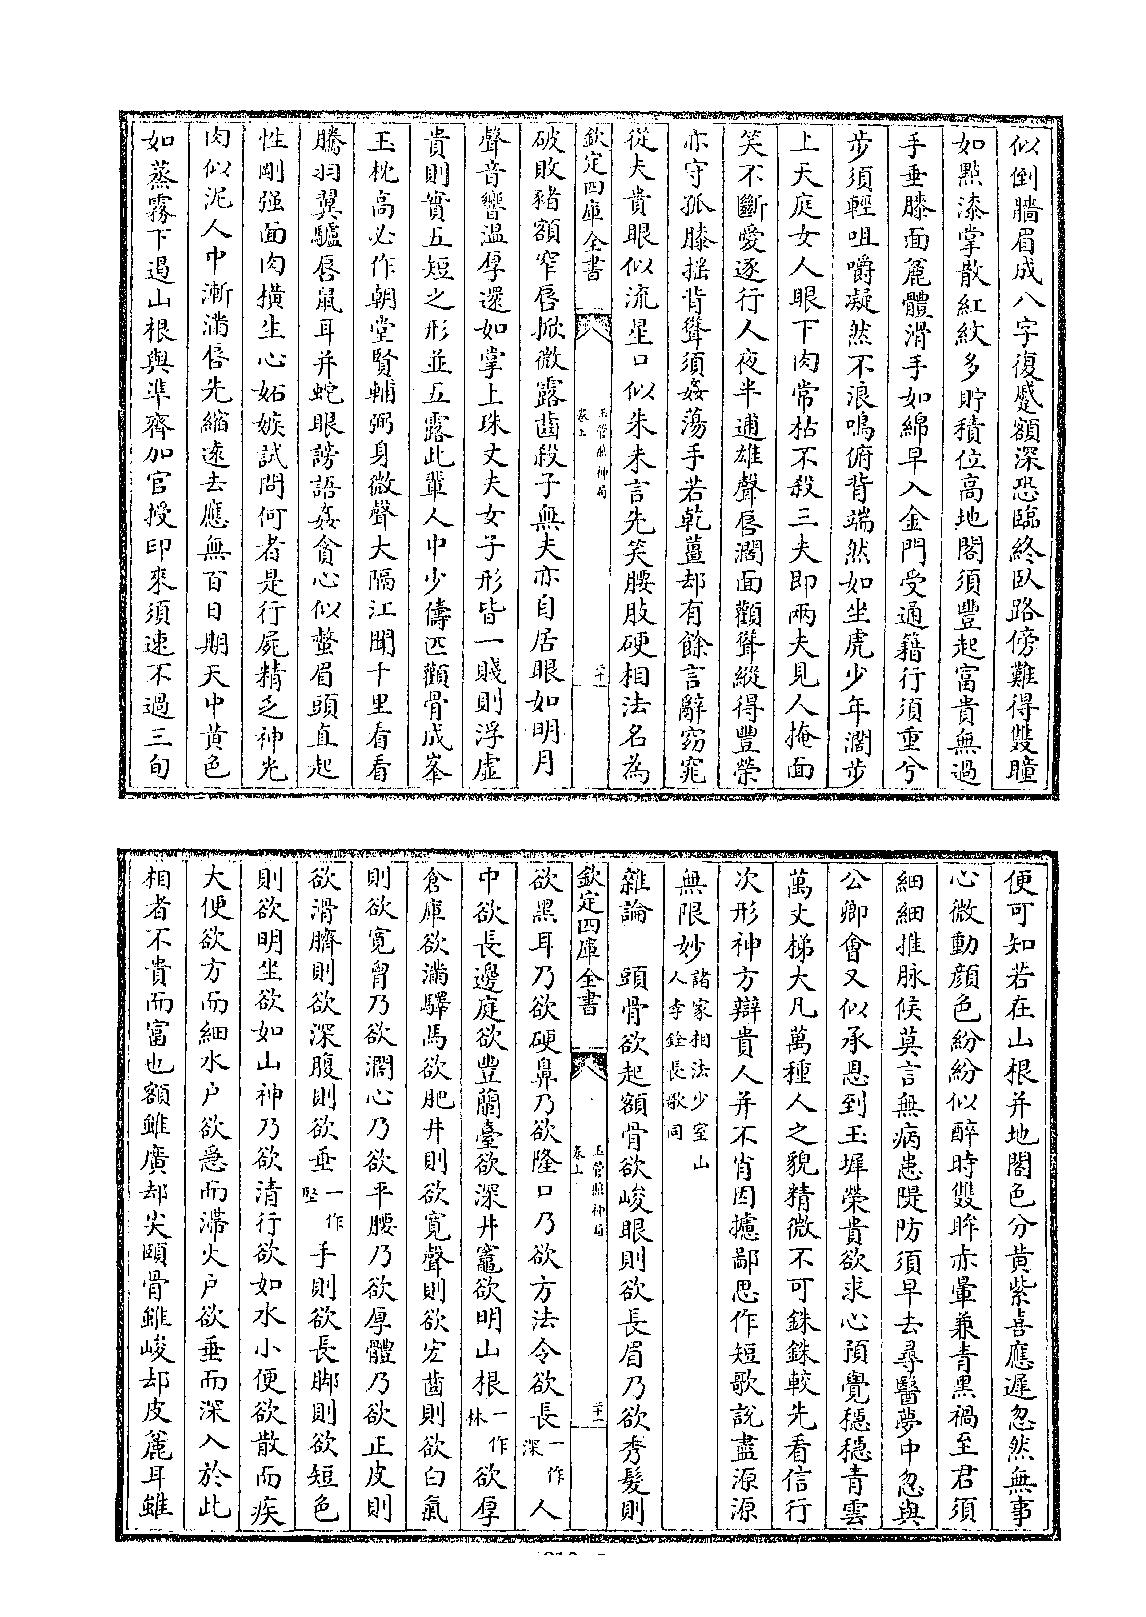 似倒牆眉成八字復蹙額深恐臨終臥路傍難得雙瞳
如㸃漆掌散紅紋多貯積位高地閣須豐起富貴無過
手垂膝面麄體滑手如綿早入金門受通籍行須重兮
步須輕咀嚼凝然不浪鳴俯背端然如坐虎少年濶步
上天庭女人眼下肉常枯不殺三夫即兩夫見人掩面
笑不斷愛逐行人夜半逋雄聲唇濶面顴聳縱得豐榮
亦守孤膝揺背聳須姦蕩手若乾薑却有餘言辭窈窕
從夫貴眼似流星口似朱未言先笑腰肢硬相法名為
欽定四庫全書
玉管照神局
卷上
二十一
破敗豬額窄唇掀微露齒殺子無夫亦自居眼如明月
聲音響溫厚還如掌上珠丈夫女子形皆一賤則浮虛
貴則實五短之形並五露此輩人中少儔匹顴骨成峯
玉枕高必作朝堂賢輔弼身微聲大隔江聞千里看看
騰羽翼驢唇鼠耳并蛇眼謗語姦貪心似螫眉頭直起
性剛强面肉横生心妬嫉試問何者是行屍精乏神光
肉似泥人中漸滿唇先縮逺去應無百日期天中黃色
如蒸霧下過山根與凖齊加官授印來須速不過三旬
便可知若在山根并地閣色分黃紫喜應遲忽然無事
心微動顔色紛紛似醉時雙眸赤暈兼青黑禍至君須
細細推脉候莫言無病患隄防須早去尋醫夢中忽與
公卿會又似承恩到玉墀榮貴欲求心預覺穩穩青雲
萬丈梯大凡萬種人之貌精微不可銖銖較先看信行
次形神方辯貴人并不肖因攄鄙思作短歌說盡源源
無限妙諸家相法少室山人李銓長歌同
雜論　頭骨欲起額骨欲峻眼則欲長眉乃欲秀髮則
欽定四庫全書
玉管照神局
卷上
二十二
欲黑耳乃欲硬鼻乃欲隆口乃欲方法令欲長一作深人
中欲長邊庭欲豐蘭臺欲深井竈欲明山根一作林欲厚
倉庫欲滿驛馬欲肥井則欲寬聲則欲宏齒則欲白氣
則欲寛胷乃欲濶心乃欲平腰乃欲厚體乃欲正皮則
欲滑臍則欲深腹則欲垂一作墜手則欲長脚則欲短色
則欲明坐欲如山神乃欲清行欲如水小便欲散而疾
大便欲方而細水户欲急而滯火户欲垂而深入於此
相者不貴而富也額雖廣却尖頤骨雖峻却皮麄耳雖